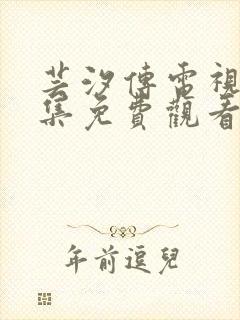 芸汐傳電視
集免費觀看
年前逗兒